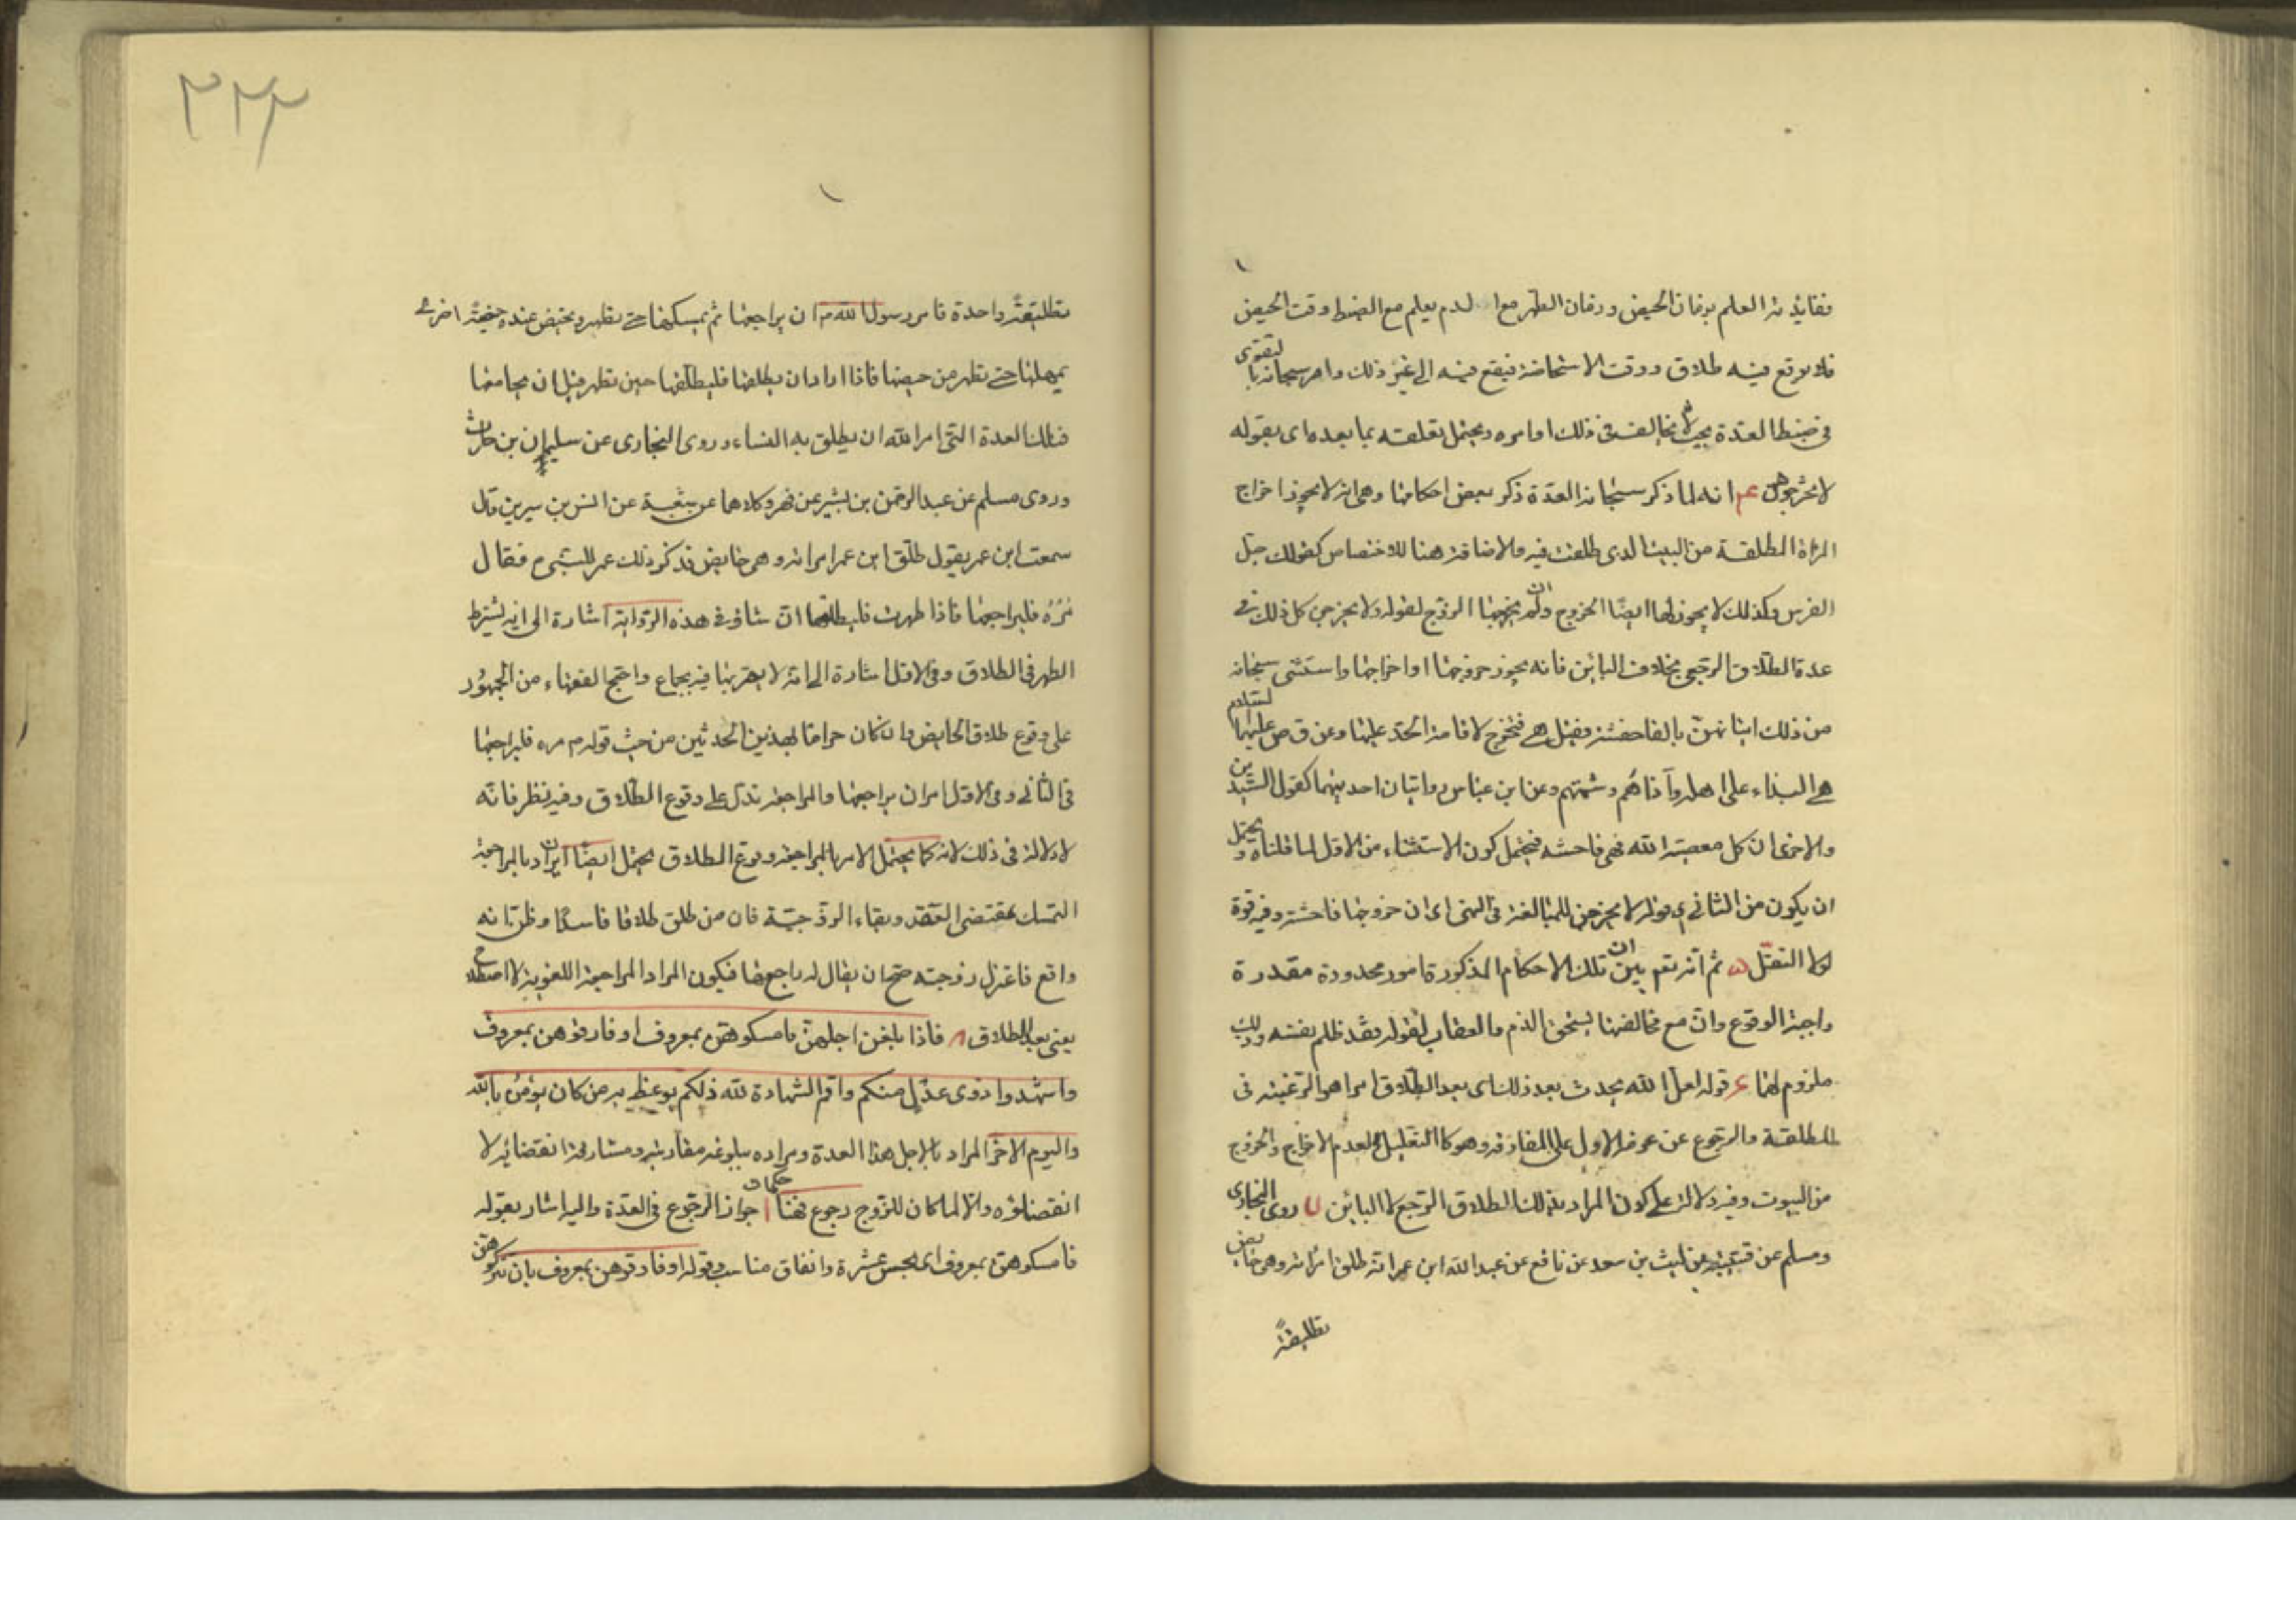 ففايدته العلم بزمان الحيض وزمان الطهر مع الدم يعلم مع الضبط وقت الحيض
فلا يوقع فيه طلاق ووقت الاستحاضة فيقع فيه الى غير ذلك وامر سبحانه بالتقوى
فى ضبط العدة بحيث لا يخالف فى ذلك اوامره ويحتمل تعلقه بما بعده اى بقوله
لا تخرجوهن انه لما ذكر سبحانه العدة ذكر بعض احكامها وهى انه لا يجوز اخراج
المراة المطلقة من البيت الذى طلقت فيه والاضافة هنا للاختصاص كقولك جل
الفرس وكذلك لا يجوز لها ايضًا الخروج وان لم يخرجها الزوج لقوله ولا يخرجن كل ذلك فى
عدة الطلاق الرجعى بخلاف البائن فانه يجوز خروجها او اخراجها واستثنى سبحانه
من ذلك اتيانهن بالفاحشة وقيل هى فتخرج لاقامة الحد عليها وعن ق ص عليهما السلام
هى البذاء على اهله وآذاهم وشتمهم وعن ابن عباس واتيان احديهما كقول السيدين
والاخرى ان كل معصية الله فهى فاحشه فيحتمل كون الاستثناء من الاول لما قلناه ويحتمل
ان يكون من الثانى اى قوله لا يخرجن للمبالغة فى النهى اى ان خروجها فاحشة وفيه قوة
لولا النقل ثم انه تعم بين ان تلك الاحكام المذكورة امور محدودة مقدرة
واجبة الوقوع وان مع مخالفتها يستحق الذم والعقاب لقوله فقد ظلم نفسه وذلك
ملزوم لهما قوله لعل الله يحدث بعد ذلك اى بعد الطلاق امرا هو الرغبة فى
المطلقة والرجوع عن عزمه الاول على المفارقة وهو كالتعليل لعدم الاخراج والخروج
من البيوت وفيه دلالة على كون المراد بذلك الطلاق الرجعى لا البائن روى البخارى
ومسلم عن قتيبة عن ليث بن سعد عن نافع عن عبد الله ابن عمر انه طلق امرأته وهى حائض
تطليقةً
٣٢٢
تطليقةً واحدة فامر رسول الله ص ان يراجعها ثم يمسكها حتى تطهر وتحيض عنده حيضةً اخرى
يمهلها حتى تطهر من حيضها فاذا اراد ان يطلقها فليطلقها حين تطهر قبل ان يجامعها
فتلك العدة التى امر الله ان يطلق به النساء وروى البخارى عن سليمان بن حرث
وروى مسلم عن عبد الرحمن بن بشير عن فهر وكلاهما عن شعبة عن انس بن سيرين قال
سمعت ابن عمر يقول طلق ابن عمر امراته وهى حايض فذكر ذلك عمر للنبى ص فقال
مُرْهُ فليراجعها فاذا طهرت فليطلقها ان شاء وفى هذه الرواية اشارة الى انه يشترط
الطهر فى الطلاق وفى الاول اشارة الى انه لا يقربها فيه بجماع واحتج الفقهاء من الجمهور
على وقوع طلاق الحايض وان كان حرامًا بهذين الحديثين من حيث قوله ص مره فليراجعها
فى الثانى وفى الاول امر ان يراجعها والمراجعة تدل على وقوع الطلاق وفيه نظر فانه
لا دلالة فى ذلك لانه كما يحتمل الامر بالمراجعة وقوع الطلاق يحتمل ايضًا ان يراد بالمراجعة
التمسك بمقتضى العقد وبقاء الزوجية فان من طلق طلاقا فاسدًا وظن انه
واقع فاعتزل زوجته صح ان يقال له راجعها فيكون المراد المراجعة اللغوية لا اصطلاح
يعنى بعد الطلاق فاذا بلغن اجلهن فامسكوهن بمعروف او فارقوهن بمعروف
واشهدوا ذوى عدل منكم واقيموا الشهادة لله ذلكم يوعظ به من كان يؤمن بالله
واليوم الاخر المراد بالاجل هذا العدة ومراده ببلوغه مقاربته ومشارفة انقضائه لا
انقضاؤه والا لما كان للزوج رجوع فهنا حكمان جواز الرجوع فى العدة واليه اشار بقوله
فامسكوهن بمعروف اى بحسن عشرة وانفاق مناسب وقوله او فارقوهن بمعروف بان تتركوهن